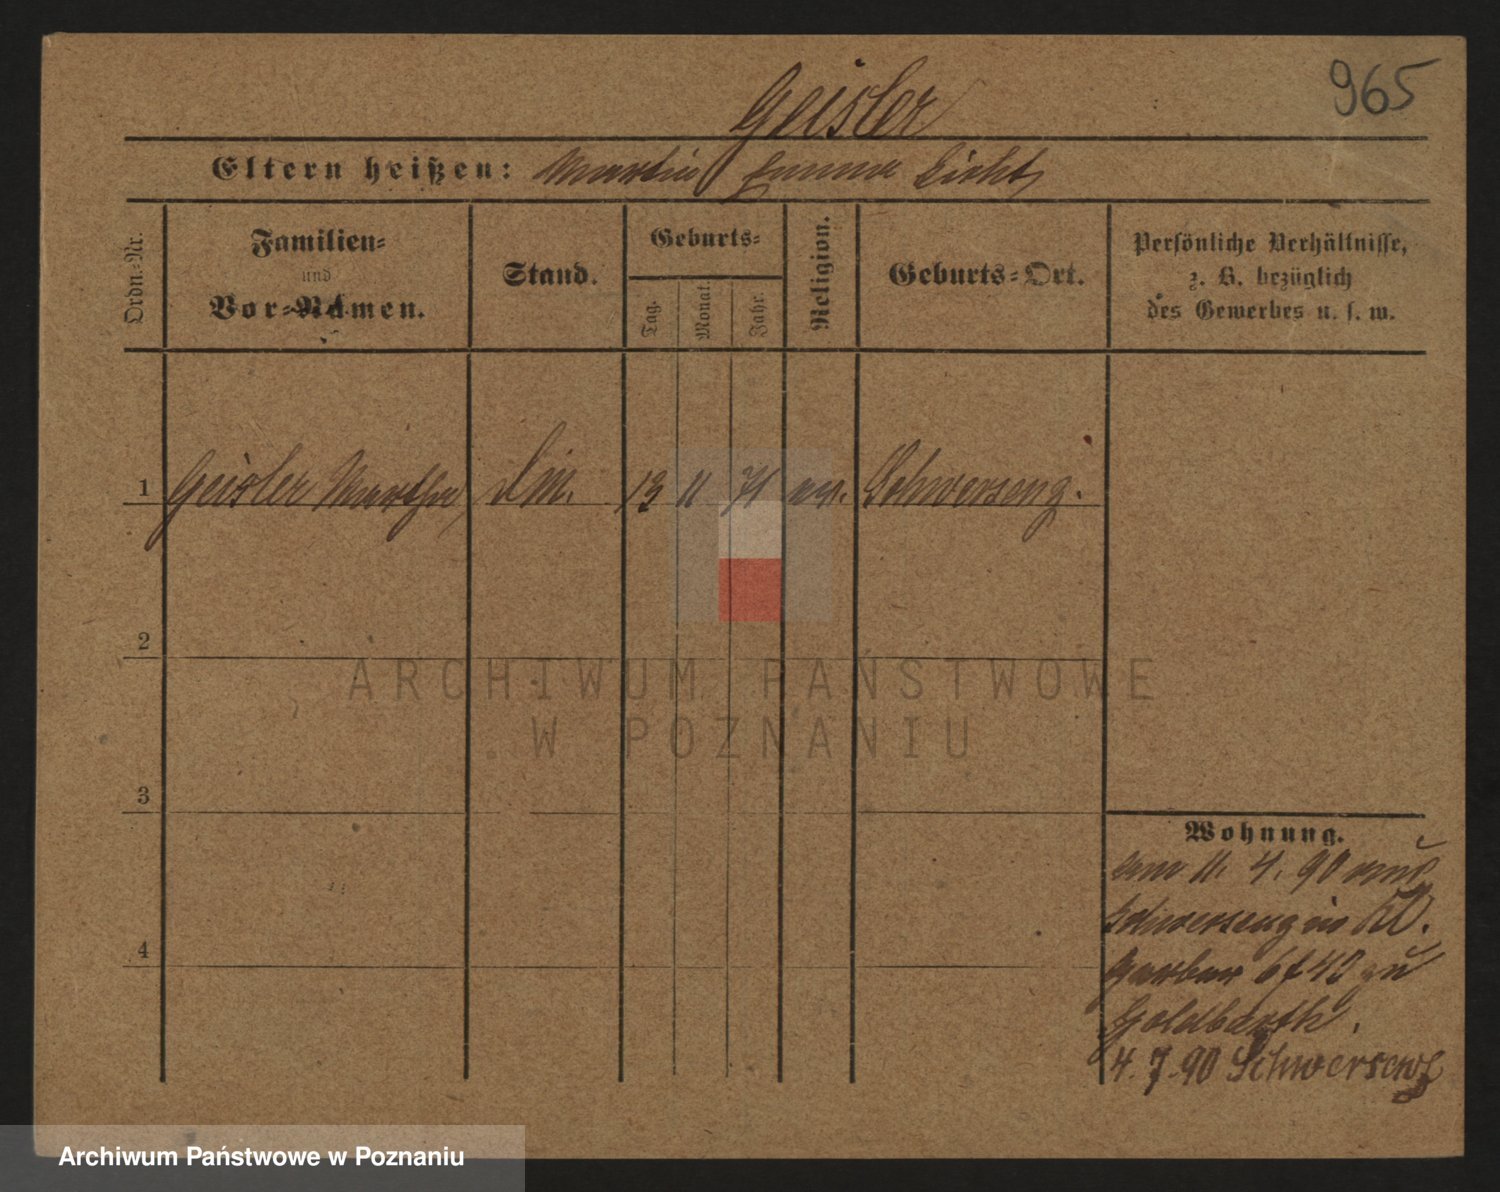 965
Geisler
Eltern heißen: Martin Emma Licht
Ordn.-Nr.
Familien- und Vor-Namen.
Stand.
Geburts-
Tag.
Monat.
Jahr.
Religion.
Geburts-Ort.
Persönliche Verhältnisse,
z. B. bezüglich
des Gewerbes u. s. w.
1 Geisler Martha 13 11 71 Schwersenz.
2
3
4
Wohnung.
11. 4. 90 aus
Schwersenz in
Gerber 42 zu
Goldbarth.
4. 7. 90 Schwersenz
ARCHIWUM PAŃSTWOWE
W POZNANIU
Archiwum Państwowe w Poznaniu